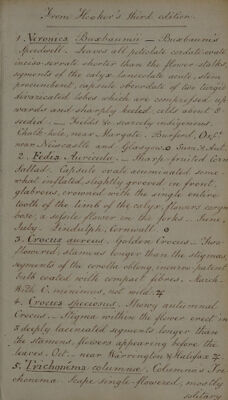 From Hooker's third edition.
1. Veronica Buxbaumii — Buxbaum's
Speedwell. Leaves all petiolate cordate-ovate
inciso-serrate shorter than the flower stalks,
segments of the calyx lanceolate acute, stem
procumbent, capsule obcordate of two turgid
divaricated lobes which are compressed up-
wards and sharply keeled, cells about 8
seeded. — Fields &c scarcely indigenous.
Chalk-hole, near Margate. Burford, Oxf.
near Newcastle and Glasgow. Sum. & Aut.
2. Fedia Auricula. — Sharp-fruited Corn
Sallad. Capsule ovate acuminated some-
what inflated slightly grooved in front,
glabrous, crowned with the single entire
tooth of the limb of the calyx, flowers corym-
bose, a sessile flower in the forks — June,
July. Lindulph, Cornwall.
3. Crocus aureus. Golden Crocus —
flowered, stamens longer than the stigmas,
segments of the corolla oblong,
bulb coated with compact fibres. March.
With C. minimus, not wild.
4. Crocus speciosus. Showy autumnal
Crocus — Stigma within the flower erect in
3 deeply laciniated segments longer than
the stamens, flowers appearing before the
leaves. Oct. — near Warrington & Halifax
5. Trichonema columnæ. Columna's Tri-
chonema. Scape single-flowered, mostly
solitary